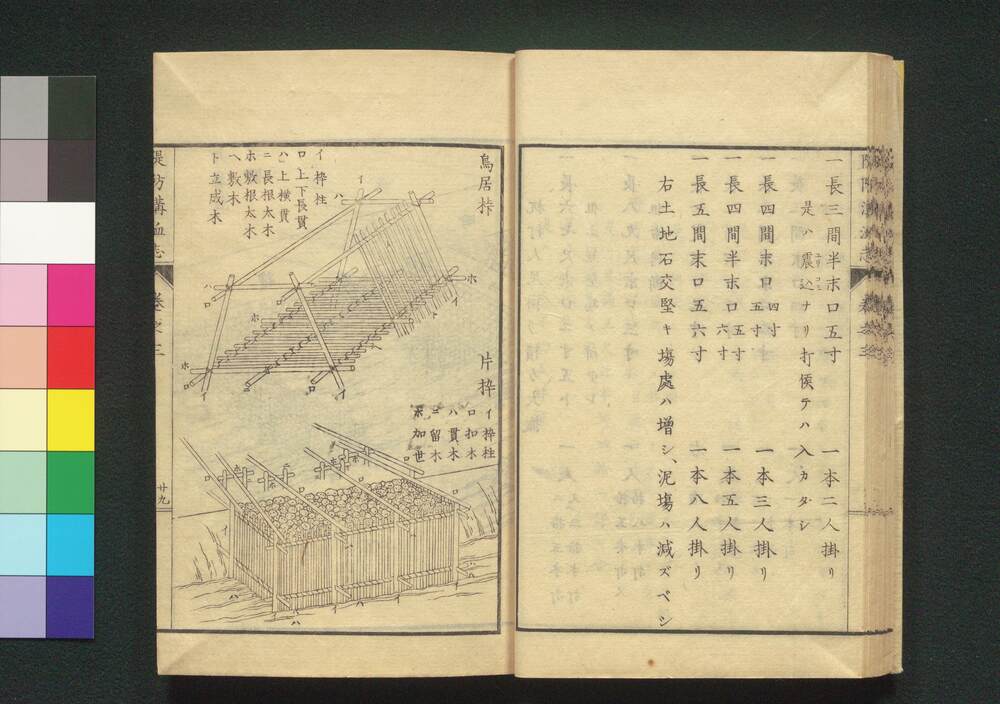 一長三間半末口五寸　一本二人掛リ
是ハ震込ナリ打候テハ入カタシ
一長四間末口四寸五寸　一本三人掛リ
一長四間半末口五寸六寸　一本五人掛リ
一長五間末口五六寸　一本八人掛リ
右土地石交堅キ塲處ハ増シ、泥塲ハ減ズベシ
鳥居枠
イ枠柱
ロ上下長貫
ハ上横貫
ニ長根太木
ホ敷根太木
ヘ敷木
ト立成木
片枠
イ枠柱
ロ扣木
ハ貫木
ニ留木
堤防溝洫志　巻之三　廿九